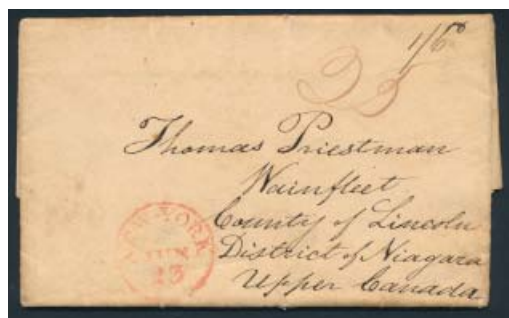 1/6
25
Thomas Priestman
Wainfleet
County of Lincoln
District of Niagara
Upper Canada
NEW YORK
JUN
23